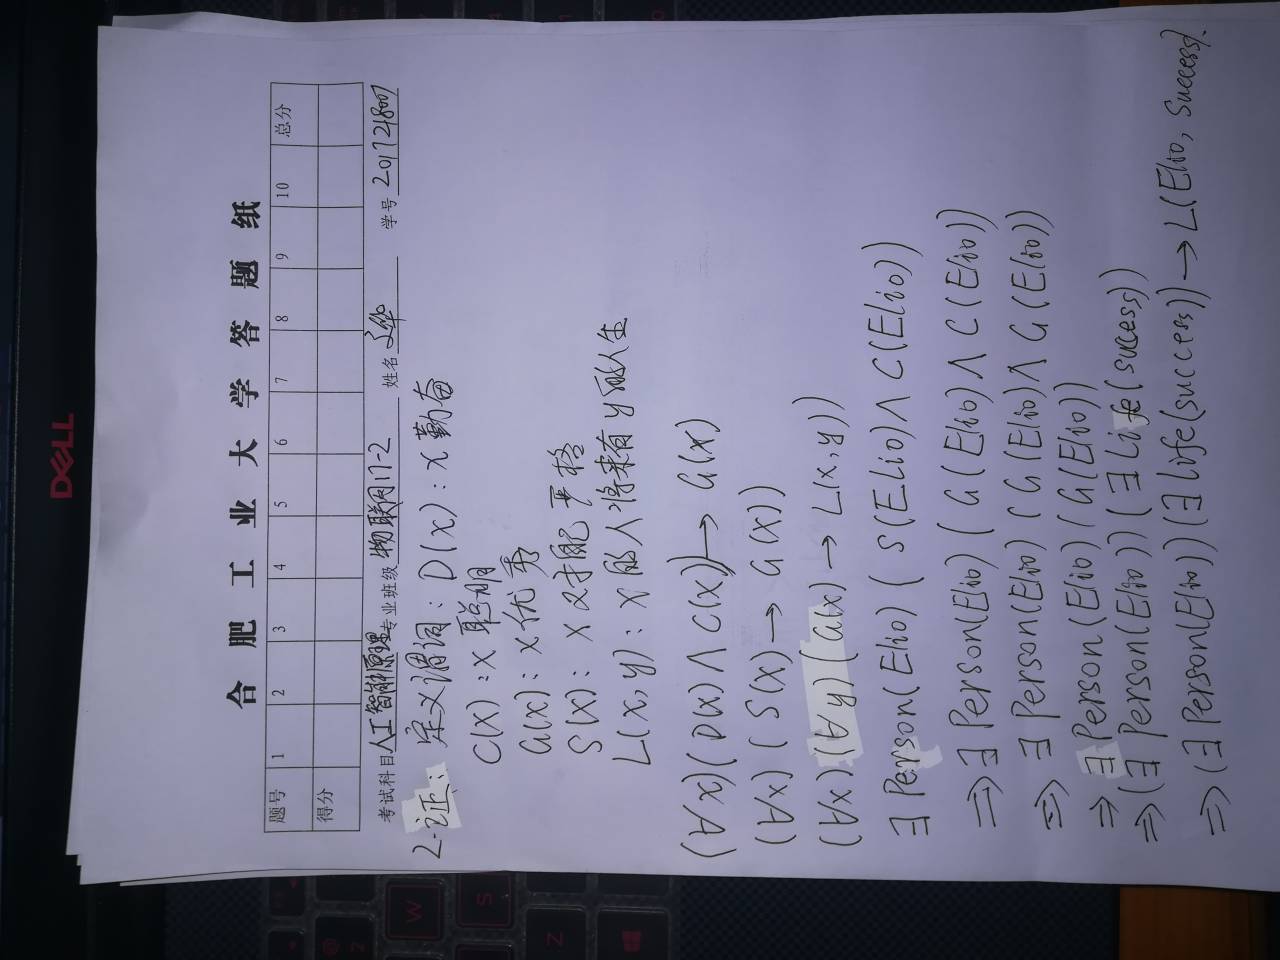 DELL
合肥工业大学答题纸
题号 1 2 3 4 5 6 7 8 9 10 总分
得分
考试科目 人工智能原理 专业班级 物联网17-2 姓名 学号
2.证: 定义谓词: D(x): x勤奋
C(x): x聪明
G(x): x优秀
S(x): x对 严格
L(x,y): x的人将来有y的人生
(∀x)(D(x)∧C(x))→ G(x)
(∀x)(S(x)→ G(x))
(∀x)(∀y)(G(x)→ L(x,y))
∃Person(Elio)(S(Elio)∧C(Elio))
⇒∃Person(Elio)(G(Elio)∧C(Elio))
⇒∃Person(Elio)(G(Elio)∧G(Elio))
⇒∃Person(Elio)(G(Elio))
⇒(∃Person(Elio))(∃Life(success))
⇒(∃Person(Elio))(∃life(success))→L(Elio, Success).